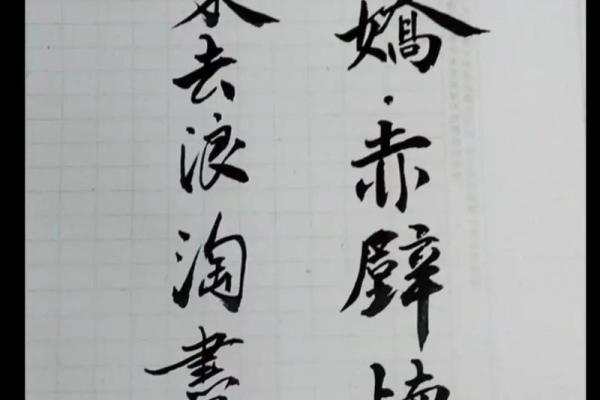 嬌·赤壁
去浪淘盡